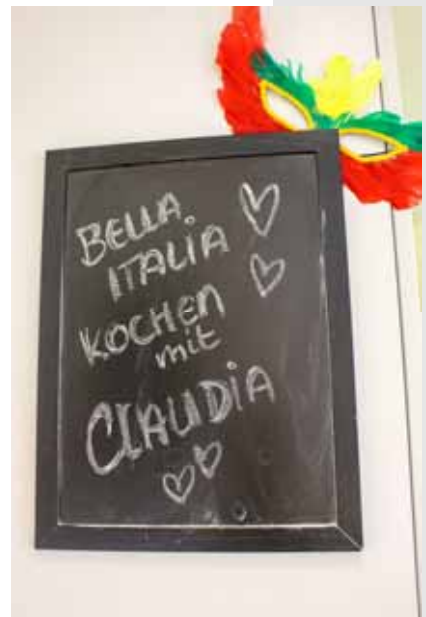 BELLA.
ITALIA
KOCHEN
mit
CLAUDIA